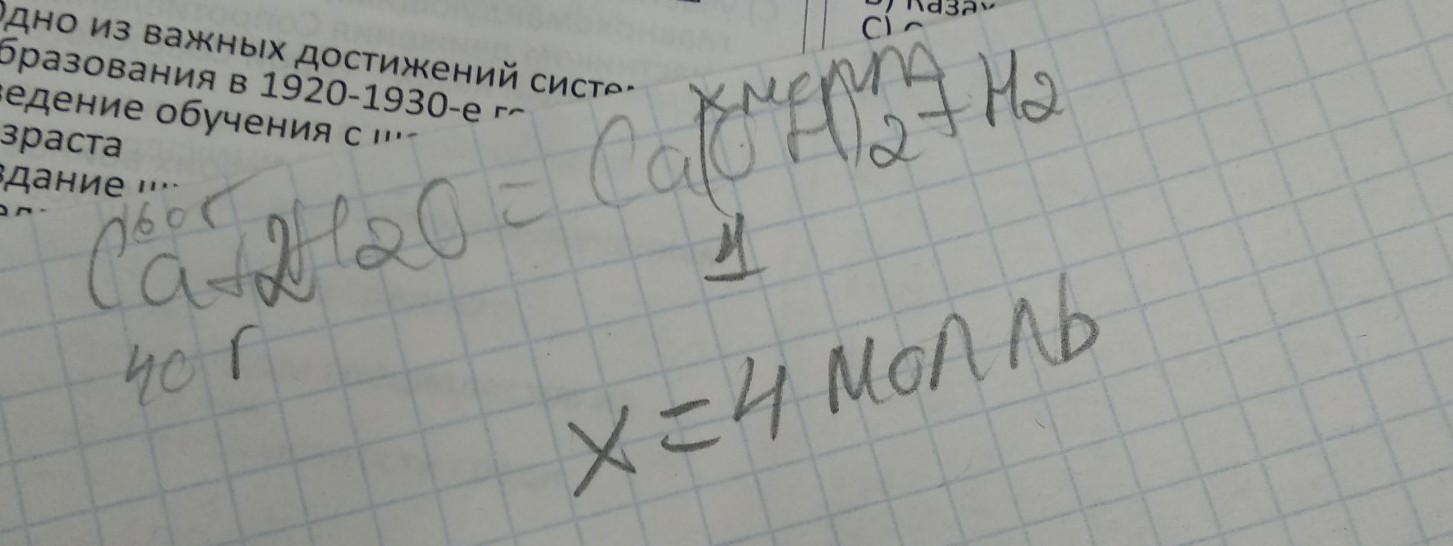 Одно из важных достижений систе
бразования в 1920-1930-е г
ведение обучения с
зраста
здание
C)
Ca+2H2O = Ca(OH)2+H2
40 г
1
x=4 моллль